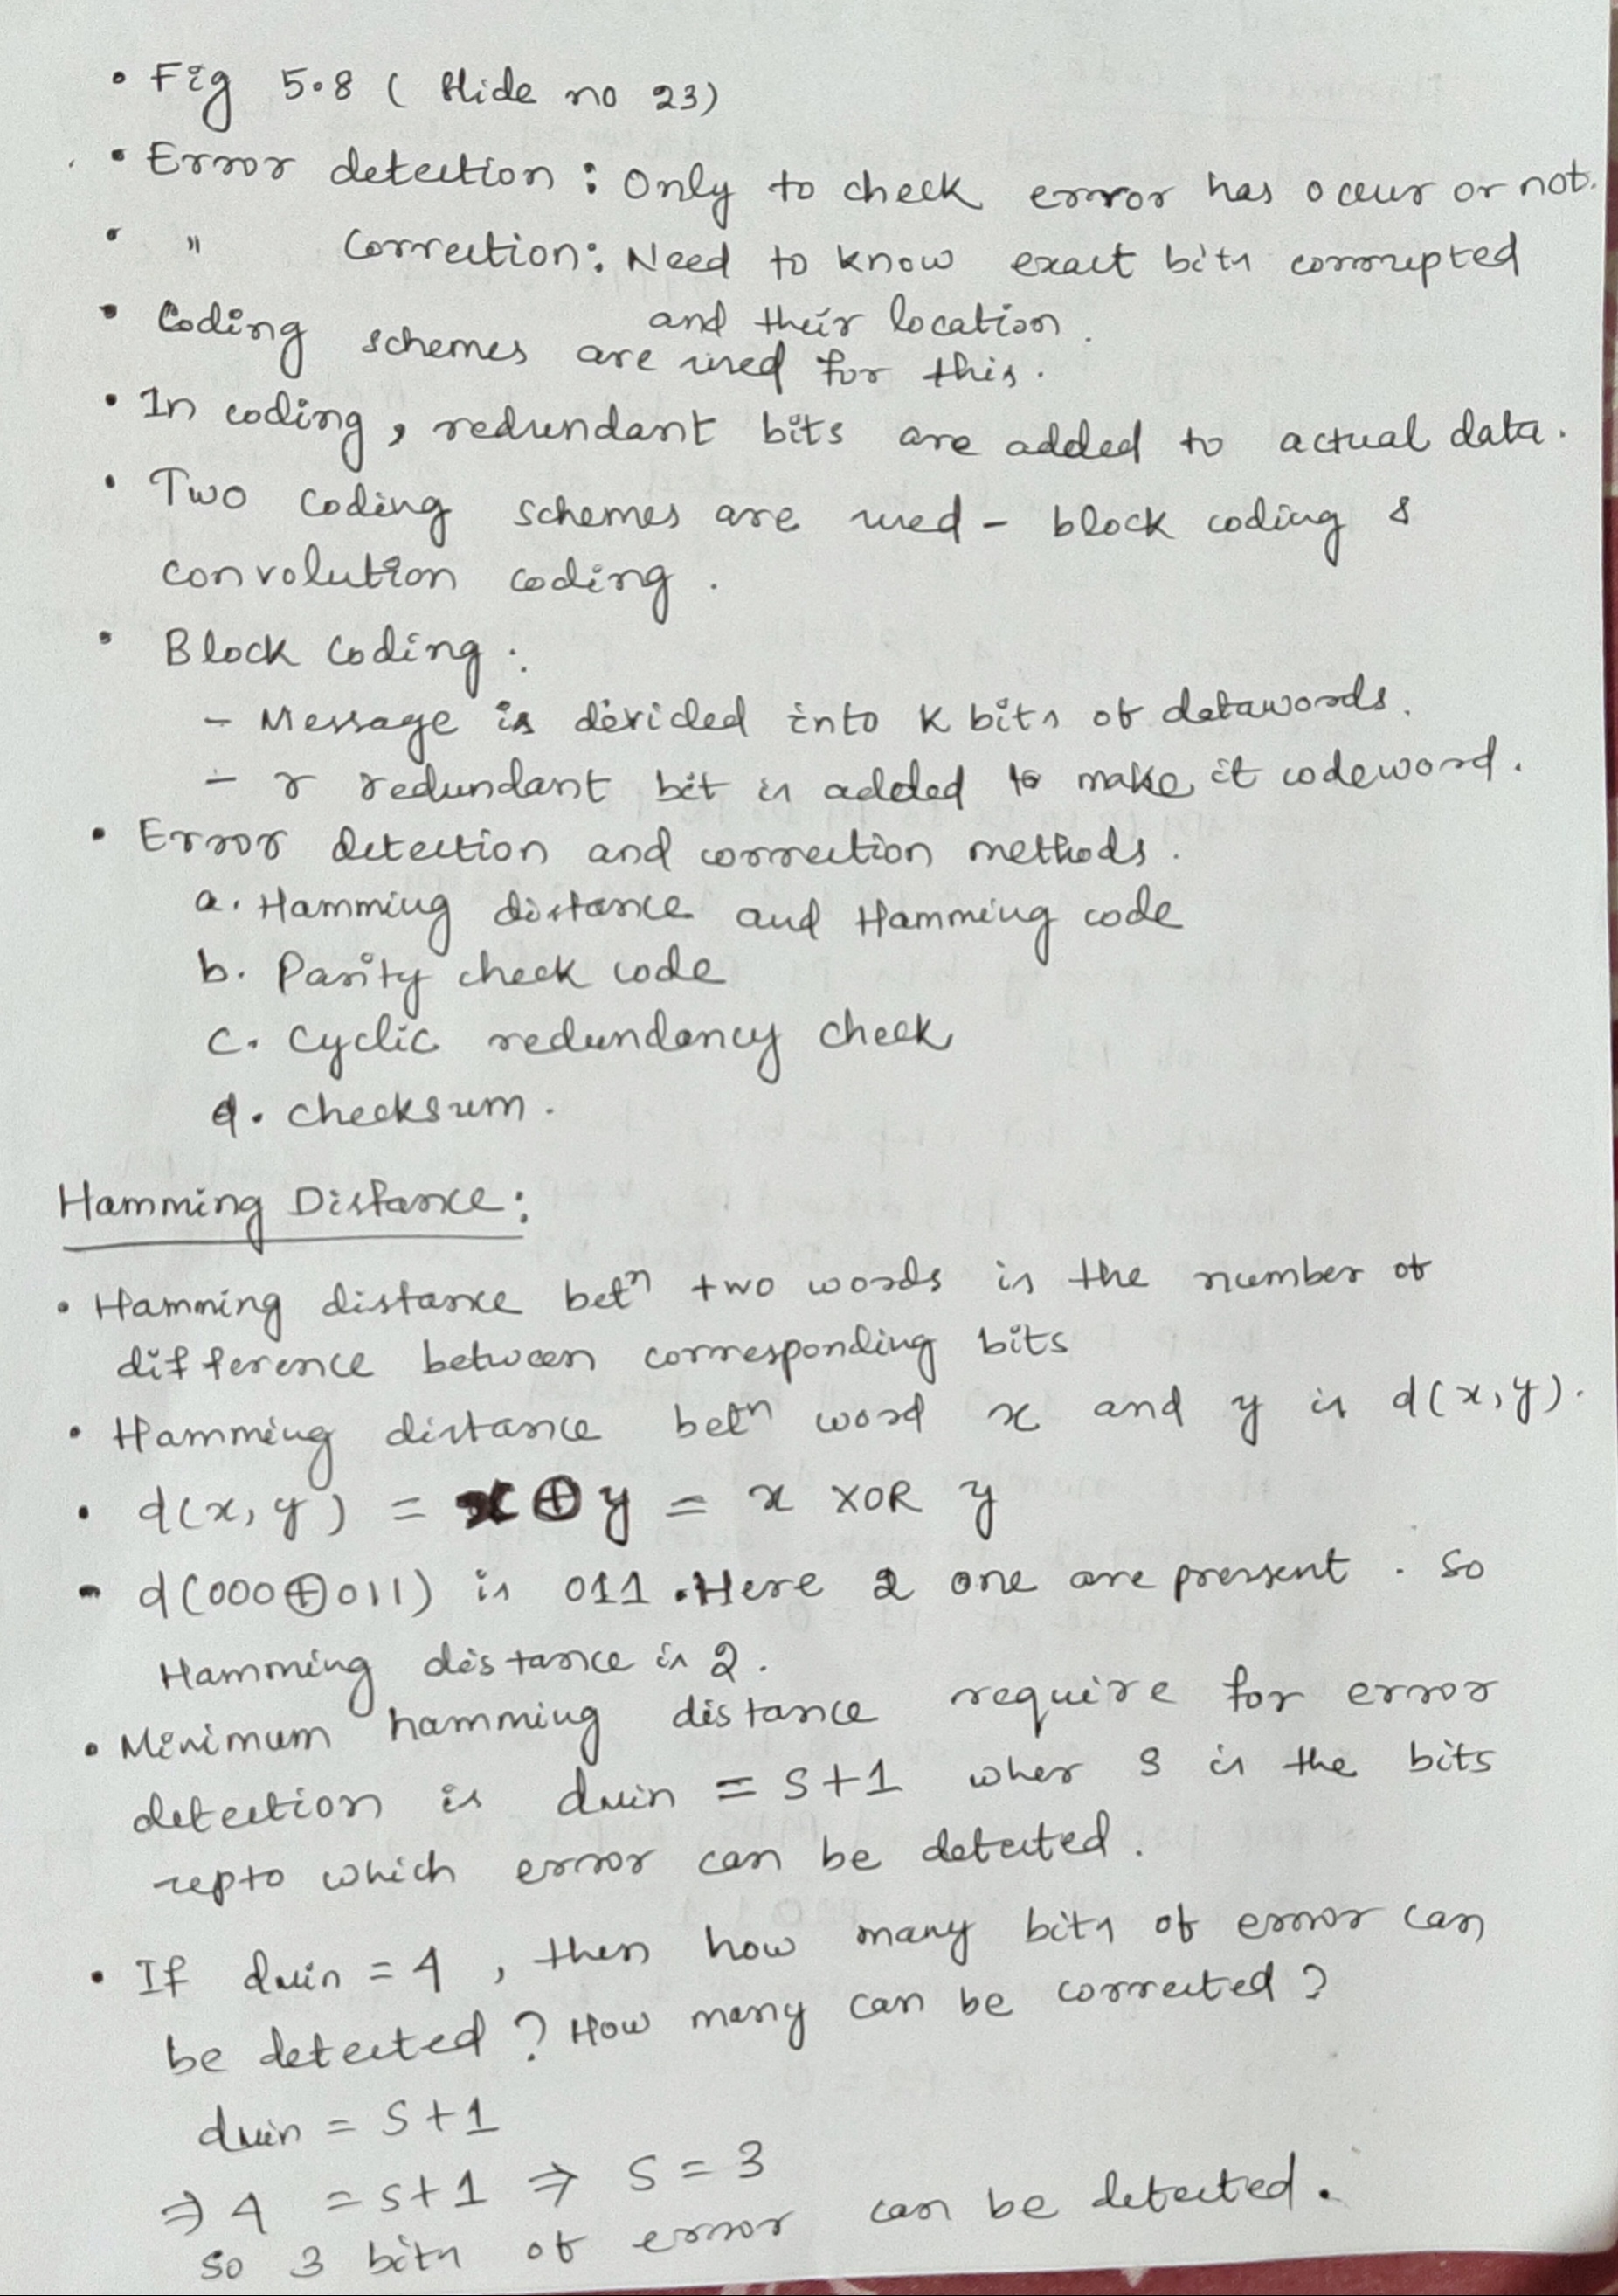 • Fig 5.8 ( Slide no 23)
• Error detection : Only to check error has occur or not.
• " Correction : Need to know exact bits corrupted
and their location.
• Coding schemes are used for this.
• In coding, redundant bits are added to actual data.
• Two coding schemes are used - block coding &
convolution coding.
• Block Coding :
- Message is divided into K bits of datawords.
- r redundant bit is added to make it codeword.
• Error detection and correction methods.
a. Hamming distance and Hamming code
b. Parity check code
c. Cyclic redundancy check
d. checksum.
Hamming Distance :
• Hamming distance betⁿ two words is the number of
difference between corresponding bits
• Hamming distance betⁿ word x and y is d(x,y).
• d(x,y) = x⊕y = x XOR y
- d(000⊕011) is 011. Here 2 one are present. So
Hamming distance is 2.
• Minimum hamming distance require for error
detection is dmin = S+1 wher S is the bits
upto which error can be detected.
• If dmin = 4, then how many bits of error can
be detected? How many can be corrected?
dmin = S+1
⇒ 4 = S+1 ⇒ S = 3
so 3 bits of error can be detected.